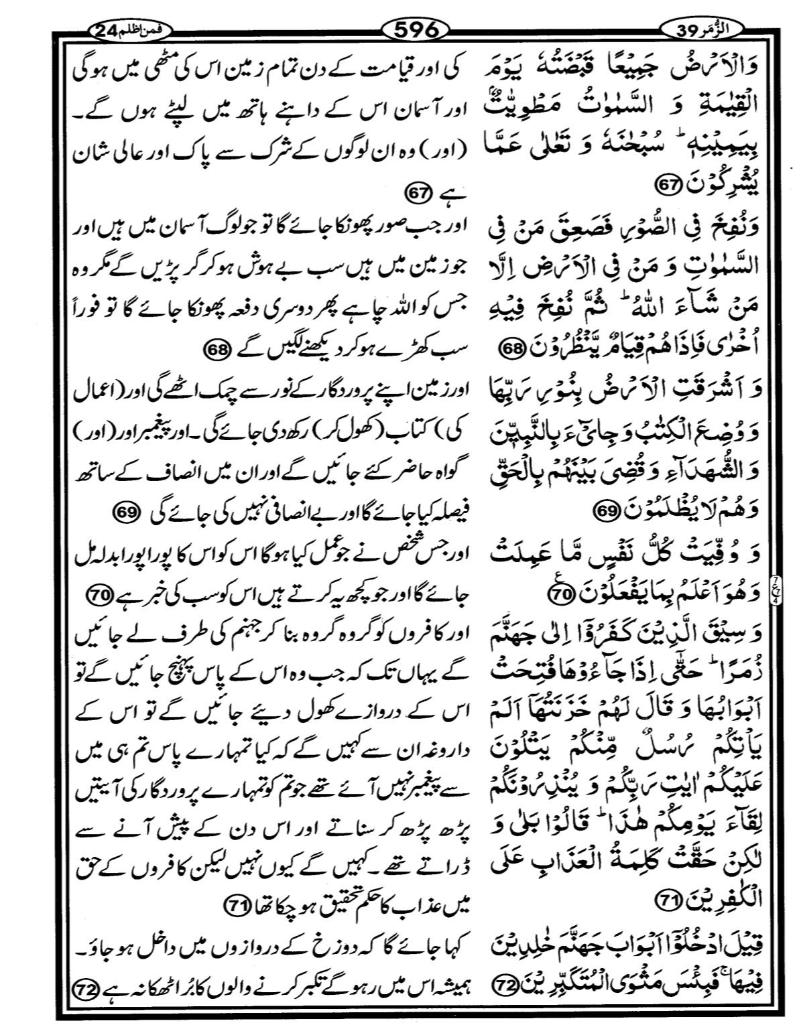 الزُّمَر 39
596
فمن اظلم 24
وَالْاَرْضُ جَمِيْعًا قَبْضَتُهٗ يَوْمَ
الْقِيٰمَةِ وَ السَّمٰوٰتُ مَطْوِيّٰتٌۢ
بِيَمِيْنِهٖ ؕ سُبْحٰنَهٗ وَ تَعٰلٰى عَمَّا
يُشْرِكُوْنَ 67
وَنُفِخَ فِى الصُّوْرِ فَصَعِقَ مَنْ فِى
السَّمٰوٰتِ وَ مَنْ فِى الْاَرْضِ اِلَّا
مَنْ شَآءَ اللّٰهُ ؕ ثُمَّ نُفِخَ فِيْهِ
اُخْرٰى فَاِذَا هُمْ قِيَامٌ يَّنْظُرُوْنَ 68
وَ اَشْرَقَتِ الْاَرْضُ بِنُوْرِ رَبِّهَا
وَ وُضِعَ الْكِتٰبُ وَ جِایْٓءَ بِالنَّبِيّٖنَ
وَ الشُّهَدَآءِ وَ قُضِىَ بَيْنَهُمْ بِالْحَقِّ
وَ هُمْ لَا يُظْلَمُوْنَ 69
وَ وُفِّيَتْ كُلُّ نَفْسٍ مَّا عَمِلَتْ
وَهُوَ اَعْلَمُ بِمَا يَفْعَلُوْنَ 70
وَ سِيْقَ الَّذِيْنَ كَفَرُوْۤا اِلٰى جَهَنَّمَ
زُمَرًا ؕ حَتّٰٓى اِذَا جَآءُوْهَا فُتِحَتْ
اَبْوَابُهَا وَ قَالَ لَهُمْ خَزَنَتُهَاۤ اَلَمْ
يَاْتِكُمْ رُسُلٌ مِّنْكُمْ يَتْلُوْنَ
عَلَيْكُمْ اٰيٰتِ رَبِّكُمْ وَ يُنْذِرُوْنَكُمْ
لِقَآءَ يَوْمِكُمْ هٰذَا ؕ قَالُوْا بَلٰى وَ
لٰكِنْ حَقَّتْ كَلِمَةُ الْعَذَابِ عَلَى
الْكٰفِرِيْنَ 71
قِيْلَ ادْخُلُوْۤا اَبْوَابَ جَهَنَّمَ خٰلِدِيْنَ
فِيْهَا ۚ فَبِئْسَ مَثْوَى الْمُتَكَبِّرِيْنَ 72
کی اور قیامت کے دن تمام زمین اس کی مٹھی میں ہوگی
اور آسمان اس کے داہنے ہاتھ میں لپٹے ہوں گے۔
(اور) وہ ان لوگوں کے شرک سے پاک اور عالی شان
ہے 67
اور جب صور پھونکا جائے گا تو جو لوگ آسمان میں ہیں اور
جو زمین میں ہیں سب بے ہوش ہو کر گر پڑیں گے مگر وہ
جس کو اللہ چاہے پھر دوسری دفعہ پھونکا جائے گا تو فوراً
سب کھڑے ہو کر دیکھنے لگیں گے 68
اور زمین اپنے پروردگار کے نور سے چمک اٹھے گی اور (اعمال
کی) کتاب (کھول کر) رکھ دی جائے گی۔ اور پیغمبر اور (اور)
گواہ حاضر کئے جائیں گے اور ان میں انصاف کے ساتھ
فیصلہ کیا جائے گا اور بے انصافی نہیں کی جائے گی 69
اور جس شخص نے جو عمل کیا ہوگا اس کو اس کا پورا پورا بدلہ مل
جائے گا اور جو کچھ یہ کرتے ہیں اس کو سب کی خبر ہے 70
اور کافروں کو گروہ گروہ بنا کر جہنم کی طرف لے جائیں
گے یہاں تک کہ جب وہ اس کے پاس پہنچ جائیں گے تو
اس کے دروازے کھول دیئے جائیں گے تو اس کے
داروغہ ان سے کہیں گے کہ کیا تمہارے پاس تم ہی میں
سے پیغمبر نہیں آئے تھے جو تم کو تمہارے پروردگار کی آیتیں
پڑھ پڑھ کر سناتے اور اس دن کے پیش آنے سے
ڈراتے تھے۔ کہیں گے کیوں نہیں لیکن کافروں کے حق
میں عذاب کا حکم تحقیق ہو چکا تھا 71
کہا جائے گا کہ دوزخ کے دروازوں میں داخل ہو جاؤ۔
ہمیشہ اس میں رہو گے تکبر کرنے والوں کا برا ٹھکانہ ہے 72